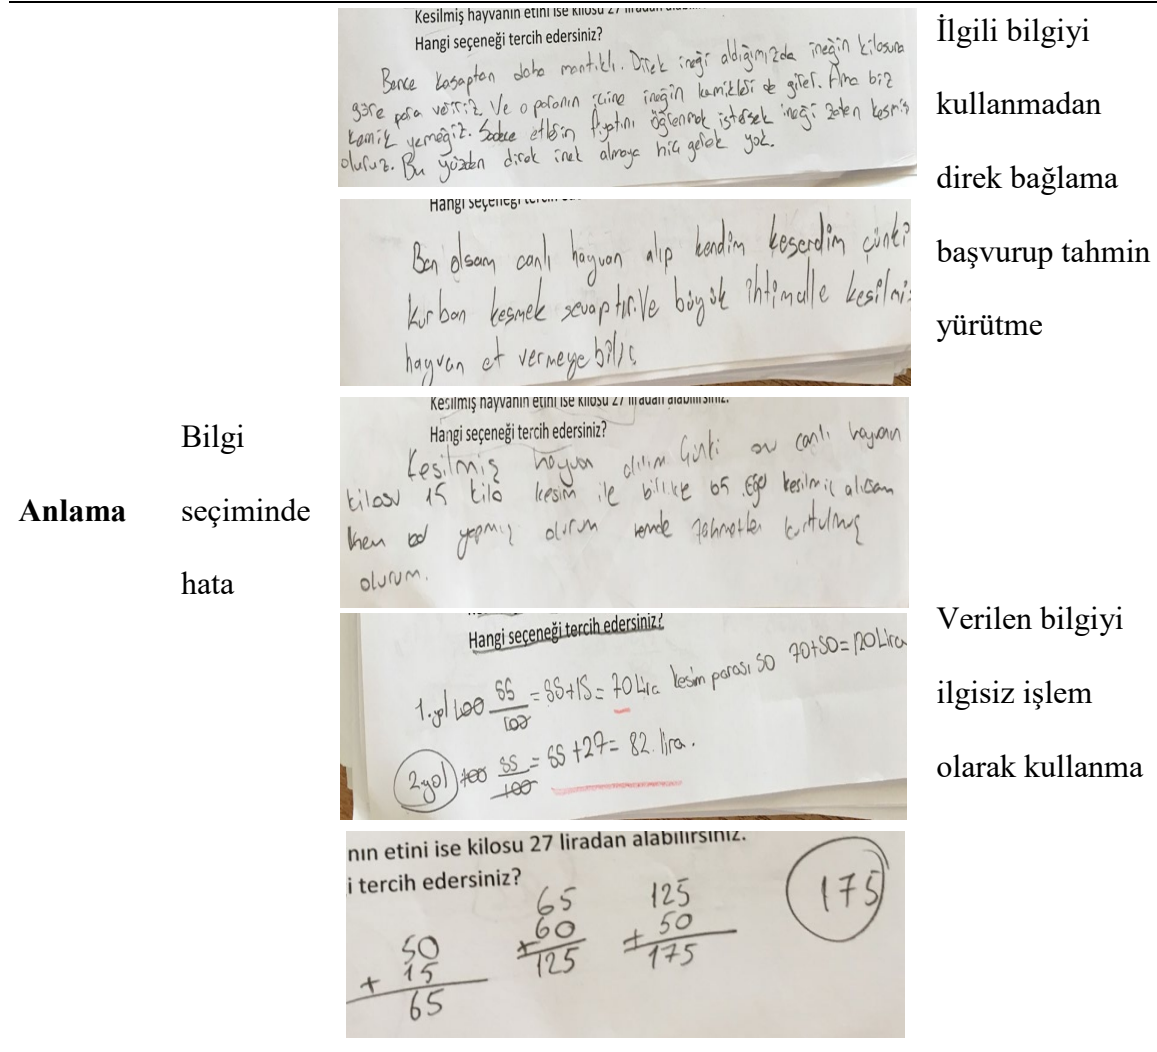 Anlama
Bilgi
seçiminde
hata
Kesilmiş hayvanın etini ise kilosu 27 liradan
Hangi seçeneği tercih edersiniz?
Bence kasaptan daha mantıklı. Direk ineği aldığımızda ineğin kilosuna
göre para veririz. Ve o paranın içine ineğin kemikleri de girer. Ama biz
kemik yemeğiz. Sadece etlerin fiyatını öğrenmek istersek ineği zaten kesmiş
oluruz. Bu yüzden direk inek almaya hiç gerek yok.
Hangi seçeneği
Ben olsam canlı hayvan alıp kendim keserdim çünki
kurban kesmek sevaptır. Ve büyük ihtimalle kesilmiş
hayvan et vermeyebilir
İlgili bilgiyi
kullanmadan
direk bağlama
başvurup tahmin
yürütme
Kesilmiş hayvanın etini ise kilosu 27 liradan alabilirsiniz.
Hangi seçeneği tercih edersiniz?
Kesilmiş hayvan alırım Çünki canlı hayvanın
kilosu 15 kilo kesim ile birlikte 65. Eğer kesilmiş alırsam
hem yapmış olurum hemde zahmetten kurtulmuş
olurum.
Hangi seçeneği tercih edersiniz?
1. yol 100 55/100 = 55+15= 70 Lira kesim parası 50 70+50= 120 Lira
2 yol 100 55/100 = 55+27= 82. lira.
nın etini ise kilosu 27 liradan alabilirsiniz.
i tercih edersiniz?
50
+ 15
65
65
+ 60
125
125
+ 50
175
175
Verilen bilgiyi
ilgisiz işlem
olarak kullanma